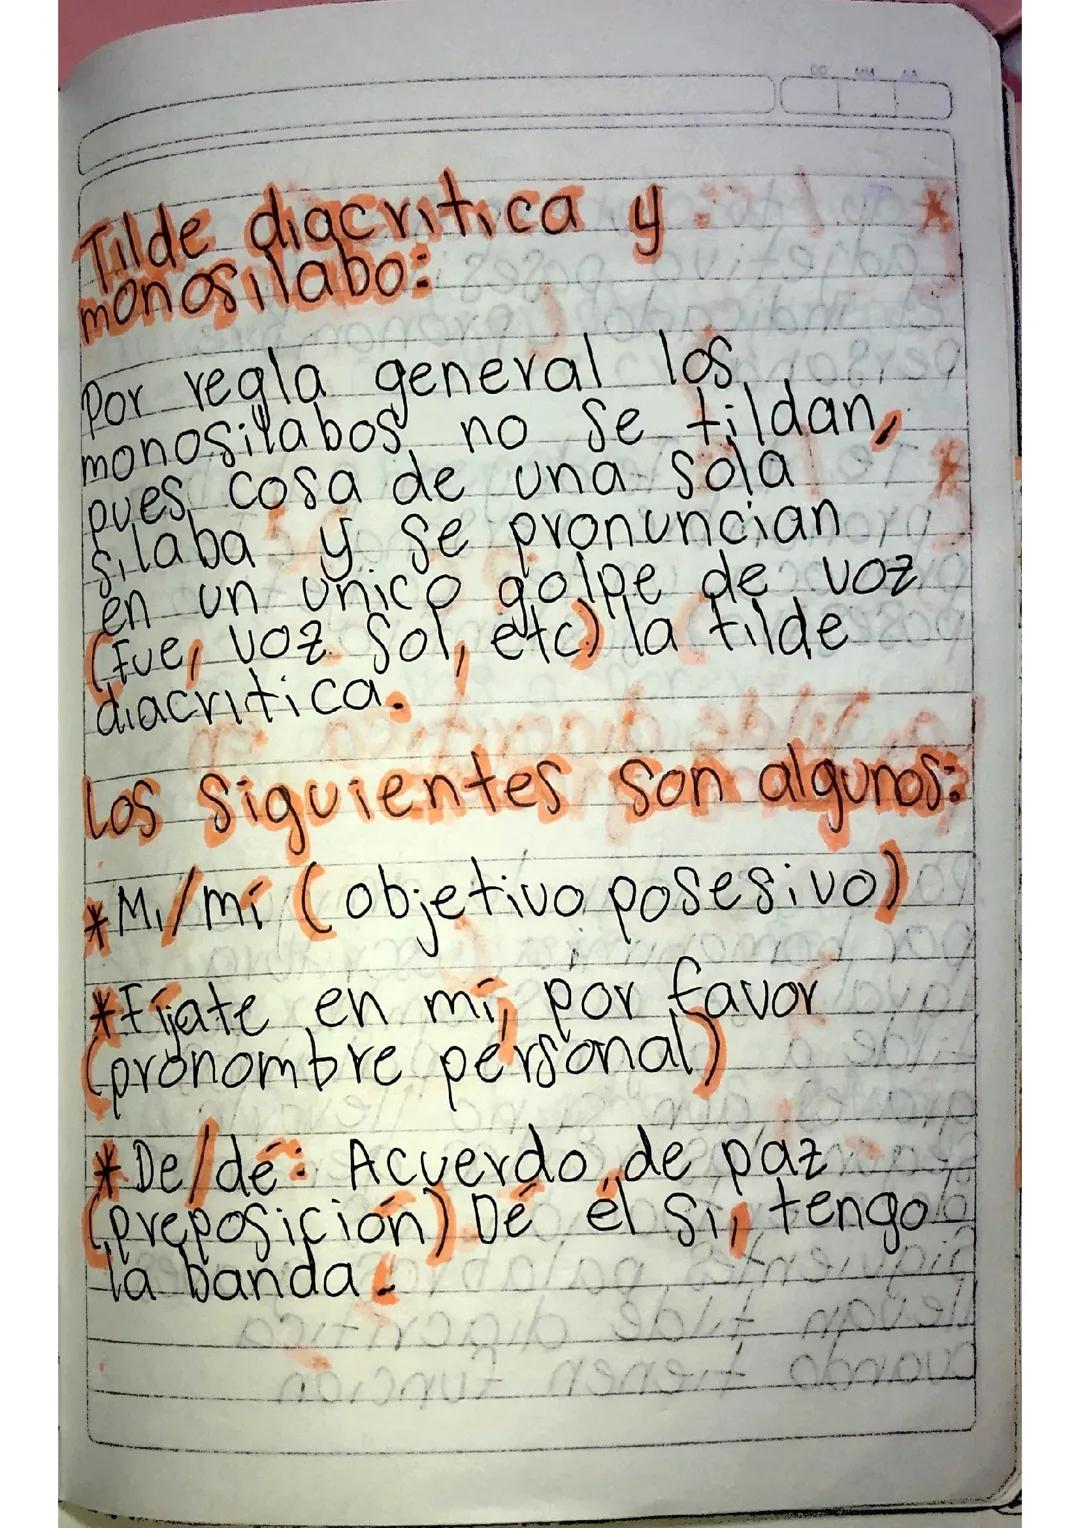 Tilde diacritica y
monosilabo:
Por regla general los
monosilabos no se tildan,
pues cosa de una sola
silaba y se pronuncian
en un único golpe de voz
(fue, voz sol, etc) la tilde
diacritica.
Los siguientes son algunos:
*Mi/mí (objetivo posesivo)
*Fíjate en mí, por favor
(pronombre personal)
*De/dé: Acuerdo de paz
(preposición) Dé él si, tengo
la banda.